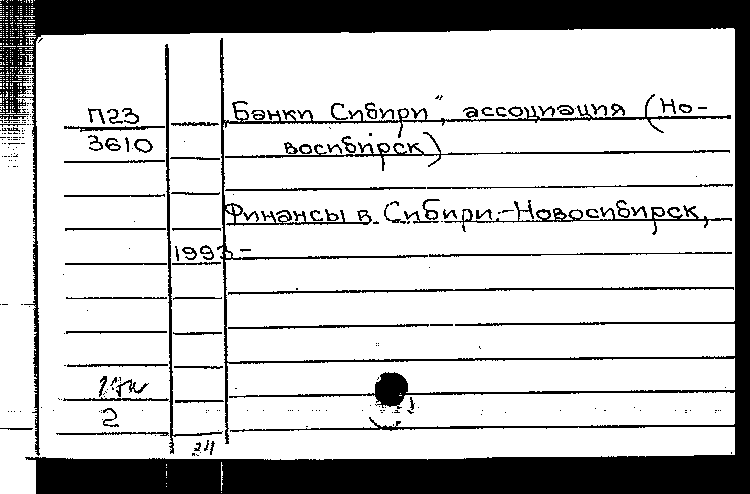 П23 „Банки Сибири", ассоциация (Но-
3610 восибирск)
Финансы в Сибири.-Новосибирск,
1993-
2
24